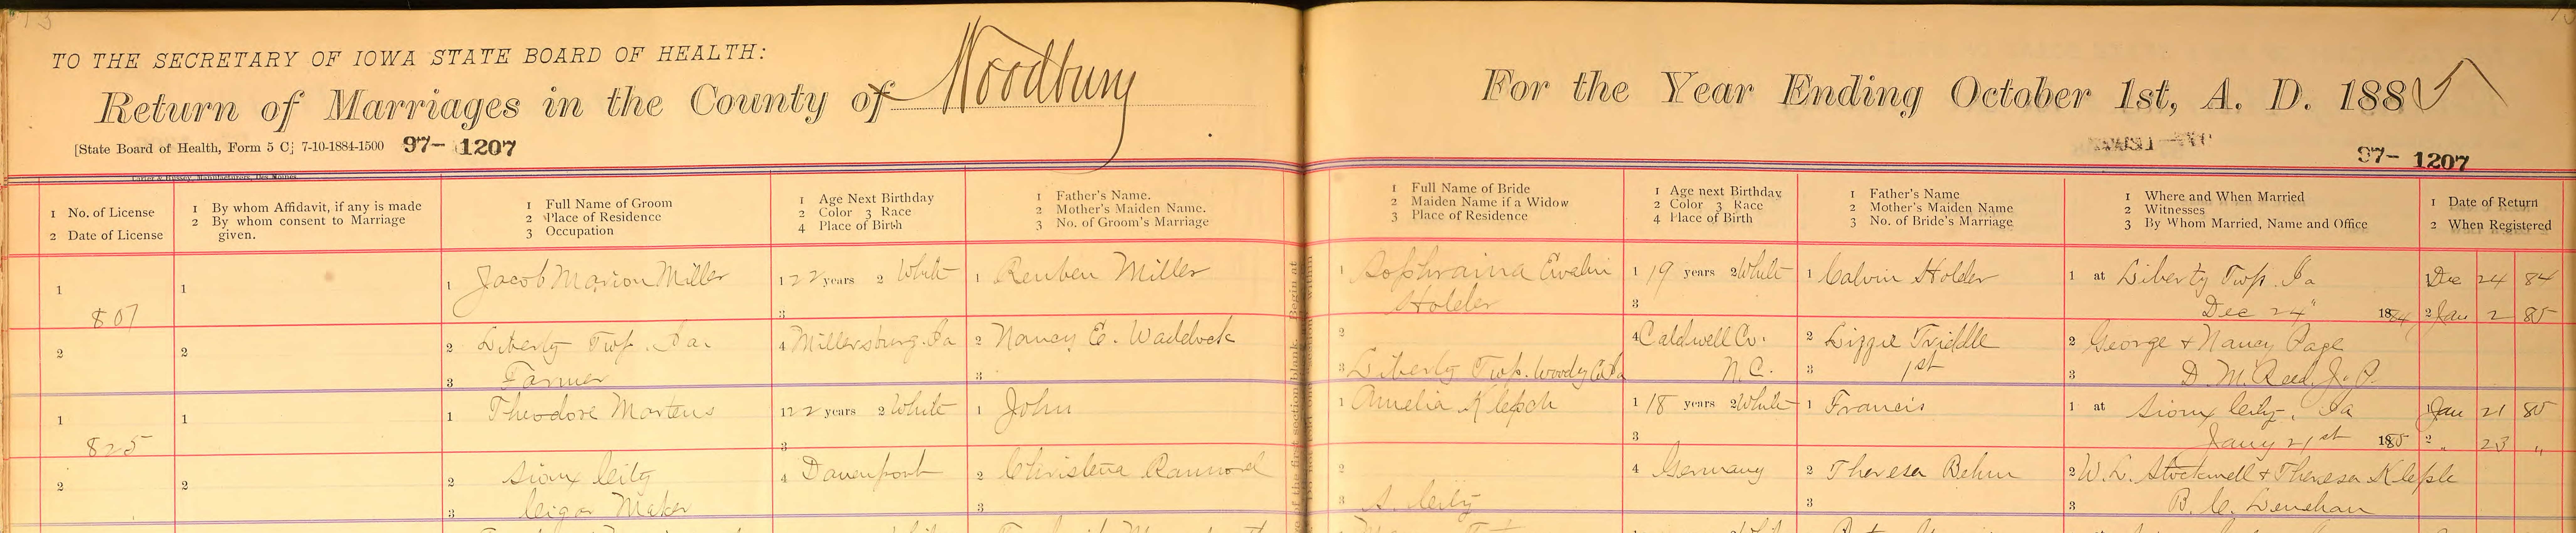 TO THE SECRETARY OF IOWA STATE BOARD OF HEALTH:
Return of Marriages in the County of Woodbury
For the Year Ending October 1st, A. D. 1885
[State Board of Health, Form 5 C; 7-10-1884-1500 97- 1207
97- 1207
Carter & Hussey, Manufacturers, Des Moines
1 No. of License
2 Date of License
1 By whom Affidavit, if any is made
2 By whom consent to Marriage
given.
1 Full Name of Groom
2 Place of Residence
3 Occupation
1 Age Next Birthday
2 Color 3 Race
4 Place of Birth
1 Father's Name.
2 Mother's Maiden Name.
3 No. of Groom's Marriage
1 Full Name of Bride
2 Maiden Name if a Widow
3 Place of Residence
1 Age next Birthday
2 Color 3 Race
4 Place of Birth
1 Father's Name
2 Mother's Maiden Name
3 No. of Bride's Marriage
1 Where and When Married
2 Witnesses
3 By Whom Married, Name and Office
1 Date of Return
2 When Registered
1
807
2
1
2
1 Jacob Marion Miller
2 Liberty Twp. Ia.
3 Farmer
1 22 years 2 White
3
4 Millersburg. Ia
1 Reuben Miller
2 Nancy E. Waddock
3
1 Sophraina Evelin
Holder
2
3 Liberty Twp. Woody Co Ia
1 19 years 2 White
3
4 Caldwell Co.
N.C.
1 Calvin Holder
2 Lizzie Triddle
3 1st
1 at Liberty Twp. Ia
Dec 24" 1884
2 George & Nancy Page
3 D. M. Reed J. P.
1 Dec 24 84
2 Jan 2 85
1
825
2
1
2
1 Theodore Martens
2 Sioux City
3 Cigar Maker
1 22 years 2 White
3
4 Davenport
1 John
2 Christena Rannord
3
1 Amelia Klepsch
2
3 S. City
1 18 years 2 White
3
4 Germany
1 Francis
2 Theresa Behm
3
1 at Sioux City, Ia
Jany 21st 1885
2 W. L. Stockwell & Theresa Kleple
3 B. C. Lenehan
Jan 21 85
2 " 23 "